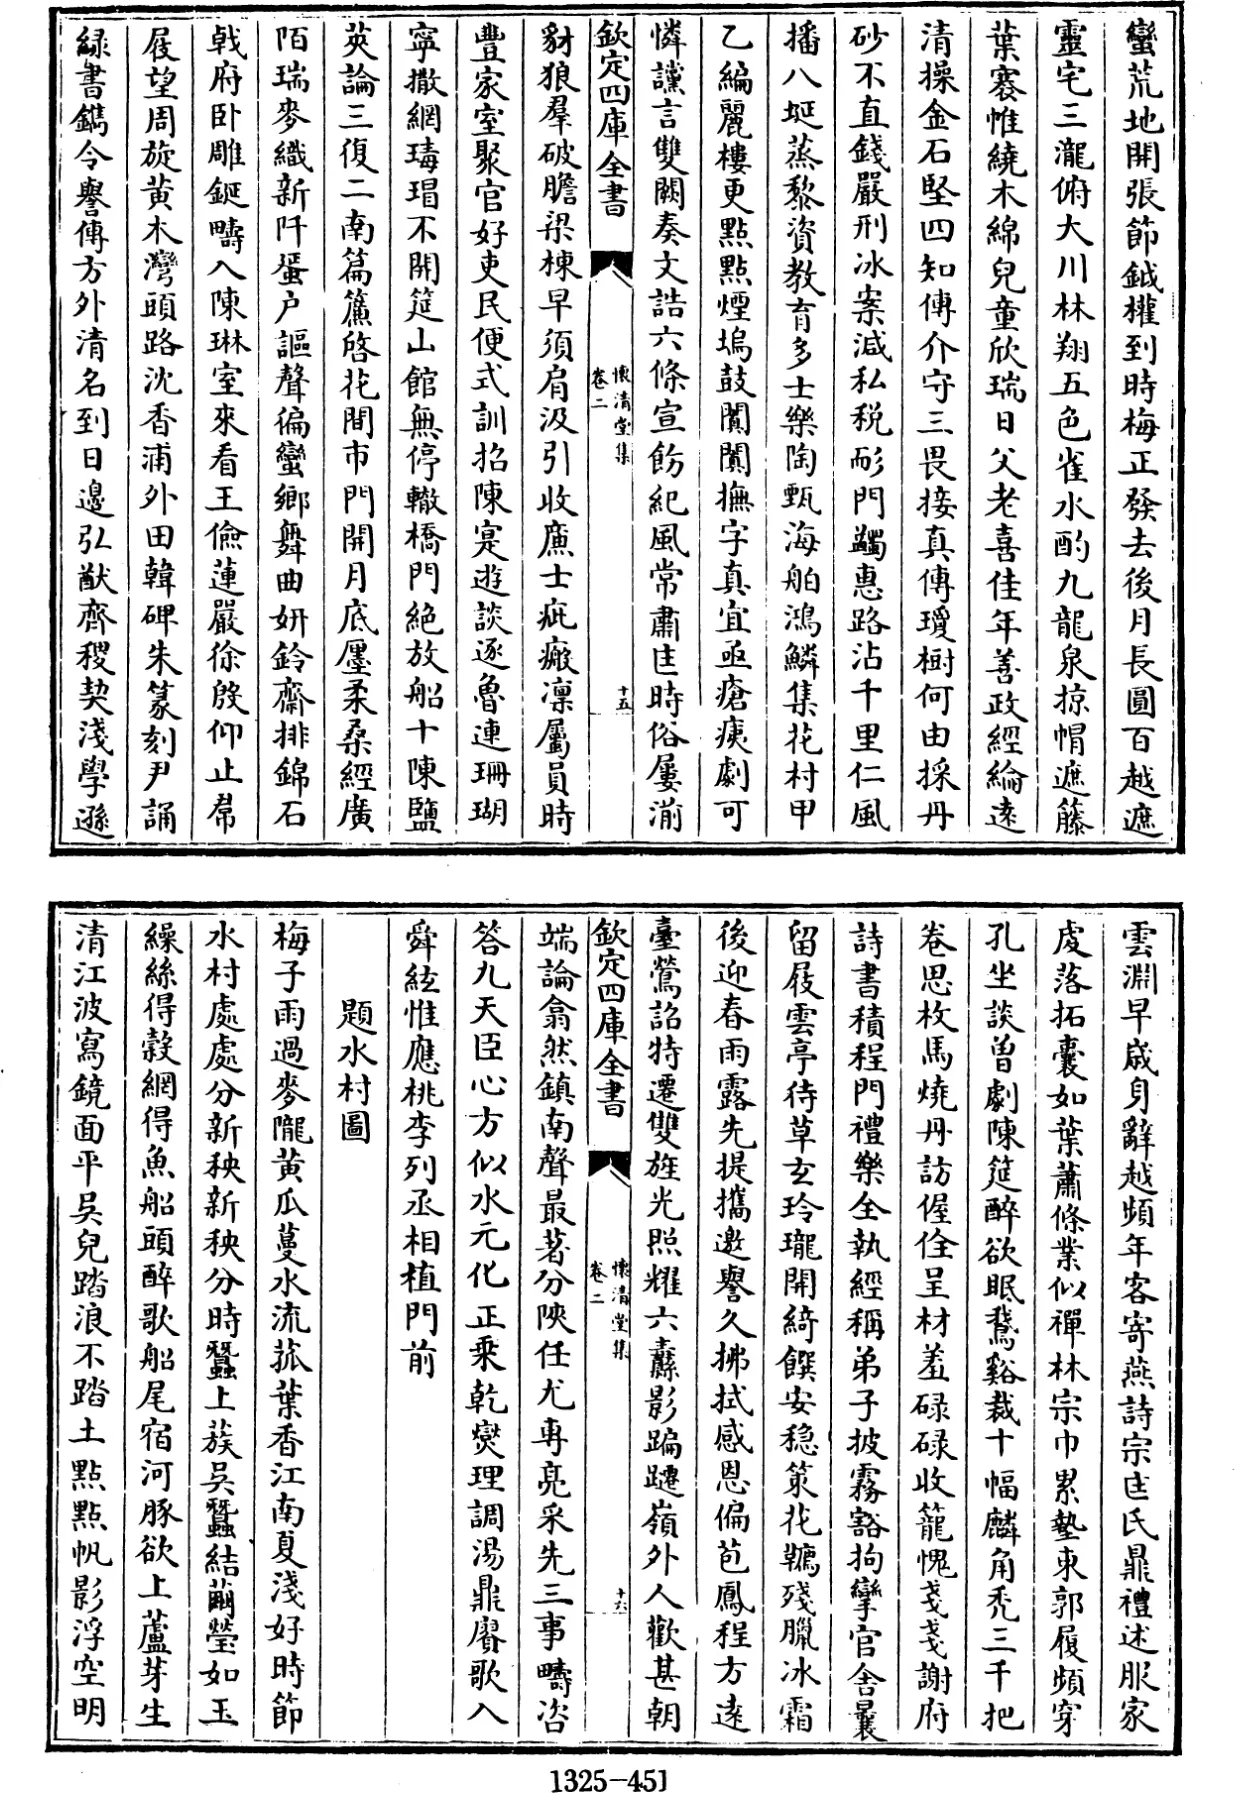 蠻荒地開張節鉞權到時梅正發去後月長圓百越遮
靈宅三瀧俯大川林翔五色雀水酌九龍泉掠帽遮藤
葉褰帷繞木綿兒童欣瑞日父老喜佳年善政經綸遠
清操金石堅四知傳介守三畏接真傳璦樹何由採丹
砂不直錢嚴刑冰案減私税彤門蠲惠路沾千里仁風
播八埏蒸黎資教育多士樂陶甄海舶鴻鱗集花村甲
乙編麗樓更點點煙塢鼓闐闐撫字真宜亟瘡痍劇可
憐讜言雙闕奏文誥六條宣飭紀風常肅匡時俗屢湔
欽定四庫全書
懷清堂集
卷二
十五
豺狼羣破膽梁棟早須肩汲引收廉士疵瘢凛屬員時
豐家室聚官好吏民便式訓招陳寔遊談逐魯連珊瑚
寧撒網瑇瑁不開筵山館無停轍橋門絶放船十陳鹽
莢論三復二南篇簾啓花間市門開月底廛柔桑經廣
陌瑞麥織新阡蜑户謳聲偏蠻鄉舞曲妍鈴齋排錦石
戟府卧雕鋋疇入陳琳室來看王儉蓮嚴徐殷仰止常
屐望周旋黄木灣頭路沈香浦外田韓碑朱篆刻尹誦
緑書鐫令譽傳方外清名到日邊弘猷齊稷契淺學遜
雲淵早歲身辭越頻年客寄燕詩宗匡氏鼎禮述服家
虔落拓囊如葉蕭條業似禪林宗巾累墊東郭履頻穿
孔坐談曾劇陳筵醉欲眠鵞谿裁十幅麟角禿三千把
卷思枚馬燒丹訪偓佺呈材羞碌碌收籠愧戔戔謝府
詩書積程門禮樂全執經稱弟子披霧豁拘攣官舎曩
留屐雲亭待草玄玲瓏開綺饌安穩策花韉殘臘冰霜
後迎春雨露先提攜邀譽久拂拭感恩偏苞鳳程方遠
臺鶯詔特遷雙旌光照耀六纛影蹁躚嶺外人歡甚朝
欽定四庫全書
懷清堂集
卷二
十六
端論翕然鎮南聲最著分陜任尤專亮采先三事疇咨
答九天臣心方似水元化正乘乾爕理調湯鼎賡歌入
舜絃惟應桃李列丞相植門前
題水村圖
梅子雨過麥隴黄瓜蔓水流菰葉香江南夏淺好時節
水村處處分新秧新秧分時蠶上蔟吴蠶結繭瑩如玉
繰絲得縠網得魚船頭醉歌船尾宿河豚欲上蘆芽生
清江波寫鏡面平吴兒踏浪不踏土點點帆影浮空明
1325-451